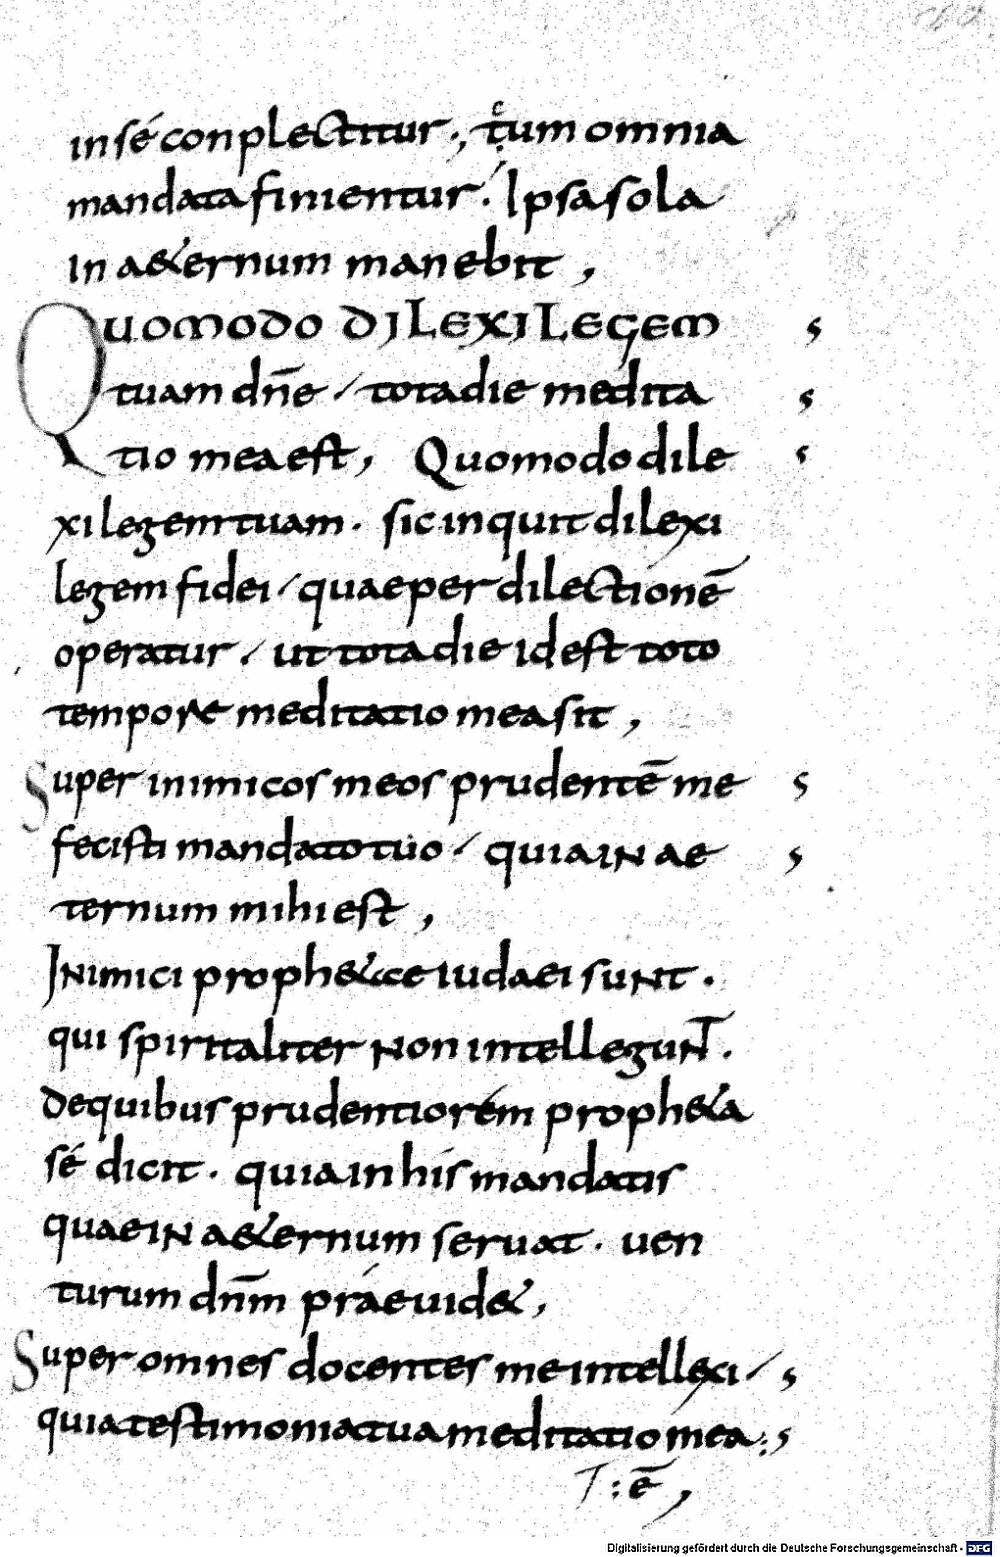 in sé conplectitur ., c̣ẹtum omnia
mandata finientur ./ Ipsa sola
In a&ernum manebit ,
QUOMODO DILEXI LEGEM s
tuam dn̄e / tota die medita s
tio mea est, Quomodo dile s
xi legem tuam . sic inquit dilexi
legem fidei / quae per dilectionē
operatur / ut tota die id est toto
tempore meditatio mea sit ,
Super inimicos meos prudentē me s
fecisti mandato tuo / quia IN ae s
ternum mihi est ,
INimici proph&ae iudaei suNt .
qui spiritaliter Non intelleguN̄T .
de quibus prudentiorém proph&a
sé dicit . quia in hís mandatis
quae IN a&ernum seruat . uen
turum dn̄m práeuid& ,
Super omnes docentes me intellexi / s
quia testimonia tua meditatio mea :, s
T : ē ,
Digitalisierung gefördert durch die Deutsche Forschungsgemeinschaft - DFG